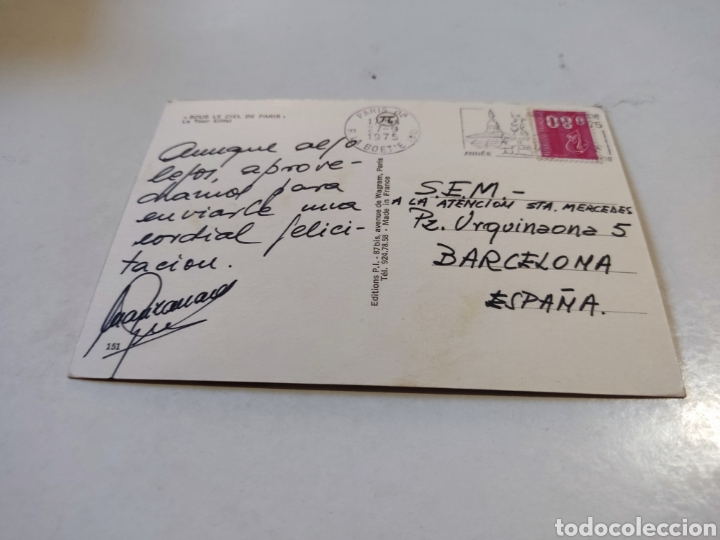 « SOUS LE CIEL DE PARIS »
La Tour Eiffel
Aunque algo
lejos, aprove-
chamos para
enviarle una
cordial felici-
tacion.
151
Editions P.I. - 87bis, avenue de Wagram, Paris
Tél. 924.78.58 - Made in France
PARIS
1975
0.80
S.E.M. -
A LA ATENCIÓN STA. MERCEDES
Pz. Urquinaona 5
BARCELONA
ESPAÑA.
todocoleccion